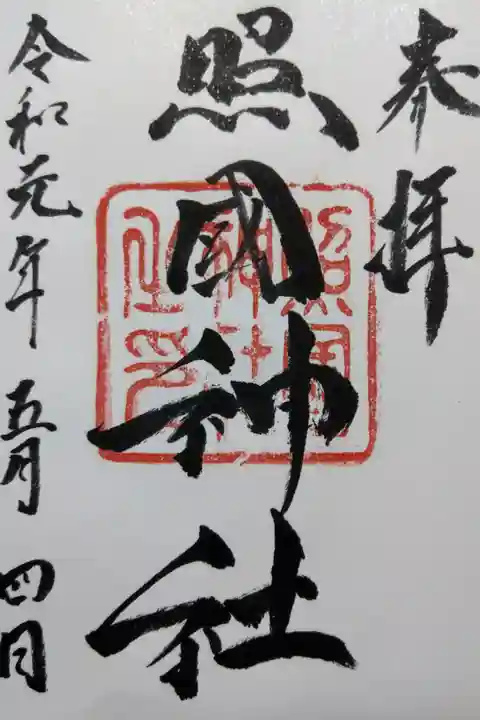 奉拝
照國神社
令和元年五月四日
照国
神社
之印